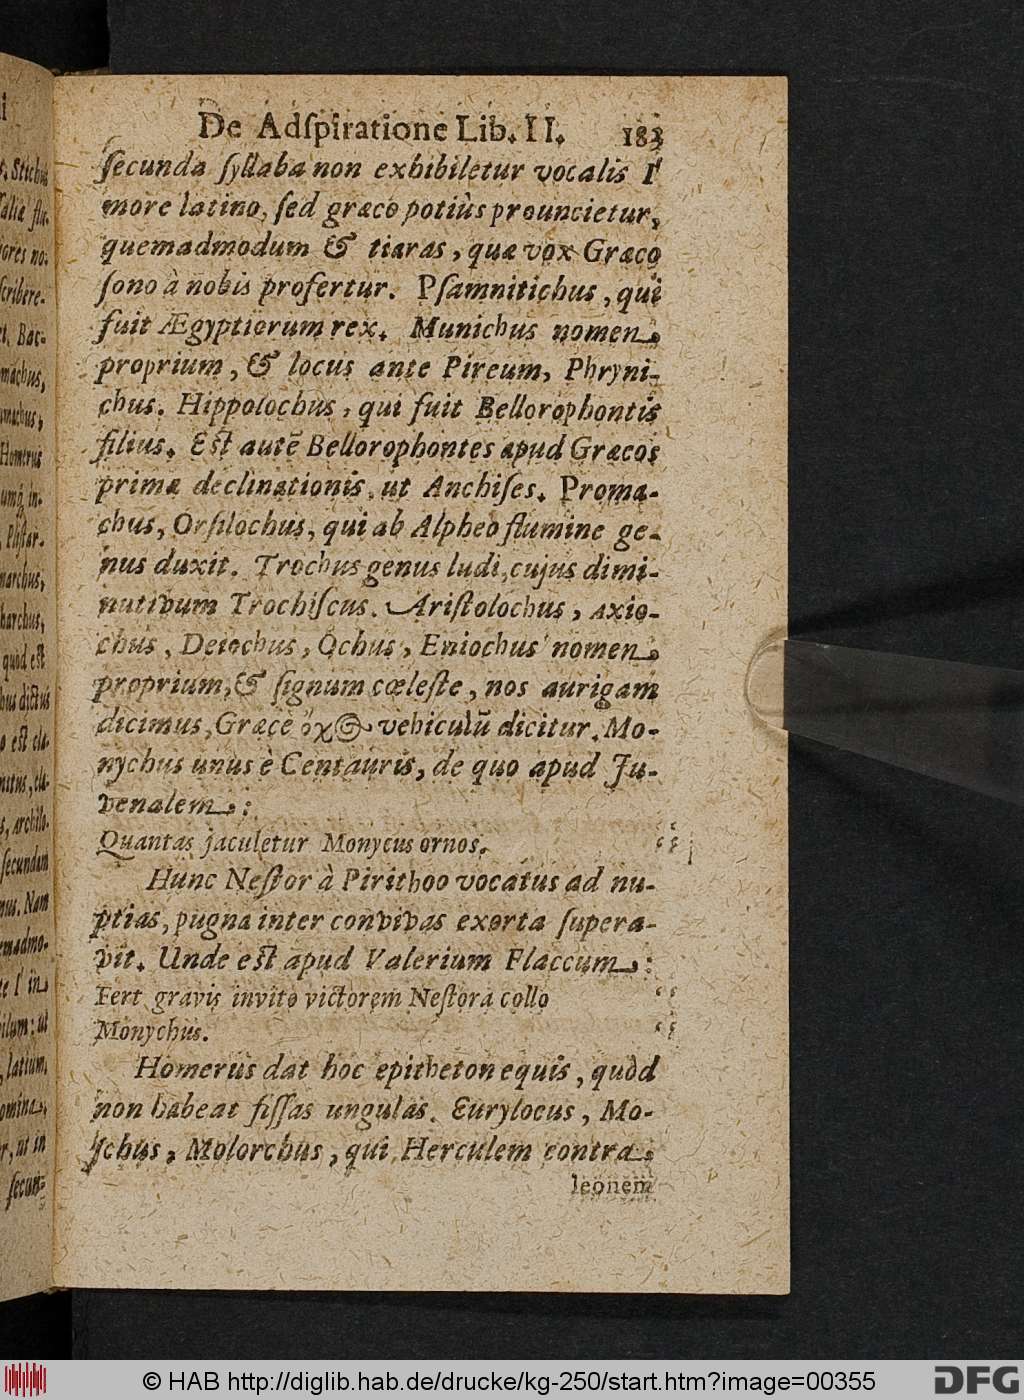 De Adſpiratione Lib. II. 183
ſecunda ſyllaba non exhibiletur vocalis I
more latino, ſed græco potiùs prouncietur,
quemadmodum & tiaras, quæ vox Græco
ſono à nobis profertur. Pſamnitichus, qui
fuit Ægyptiorum rex. Munichus nomen
proprium, & locus ante Pireum, Phryni-
chus. Hippolochus, qui fuit Bellorophontis
filius. Eſt autē Bellorophontes apud Græcos
primæ declinationis, ut Anchiſes. Proma-
chus, Orſilochus, qui ab Alpheo flumine ge-
nus duxit. Trochus genus ludi, cujus dimi-
nutivum Trochiſcus. Ariſtolochus, Axio-
chus, Deiochus, Ochus, Eniochus nomen
proprium, & ſignum cœleſte, nos aurigam
dicimus, Græce ὄχος vehiculū dicitur. Mo-
nychus unus è Centauris, de quo apud Ju-
venalem:
Quantas jaculetur Monycus ornos.
Hunc Neſtor à Pirithoo vocatus ad nu-
ptias, pugna inter convivas exorta ſupera-
vit. Unde eſt apud Valerium Flaccum:
Fert gravis invito victorem Neſtora collo
Monychus.
Homerus dat hoc epitheton equis, quòd
non habeat fiſſas ungulas. Eurylocus, Mo-
ſchus, Molorchus, qui Herculem contra
leonem
© HAB http://diglib.hab.de/drucke/kg-250/start.htm?image=00355
DFG